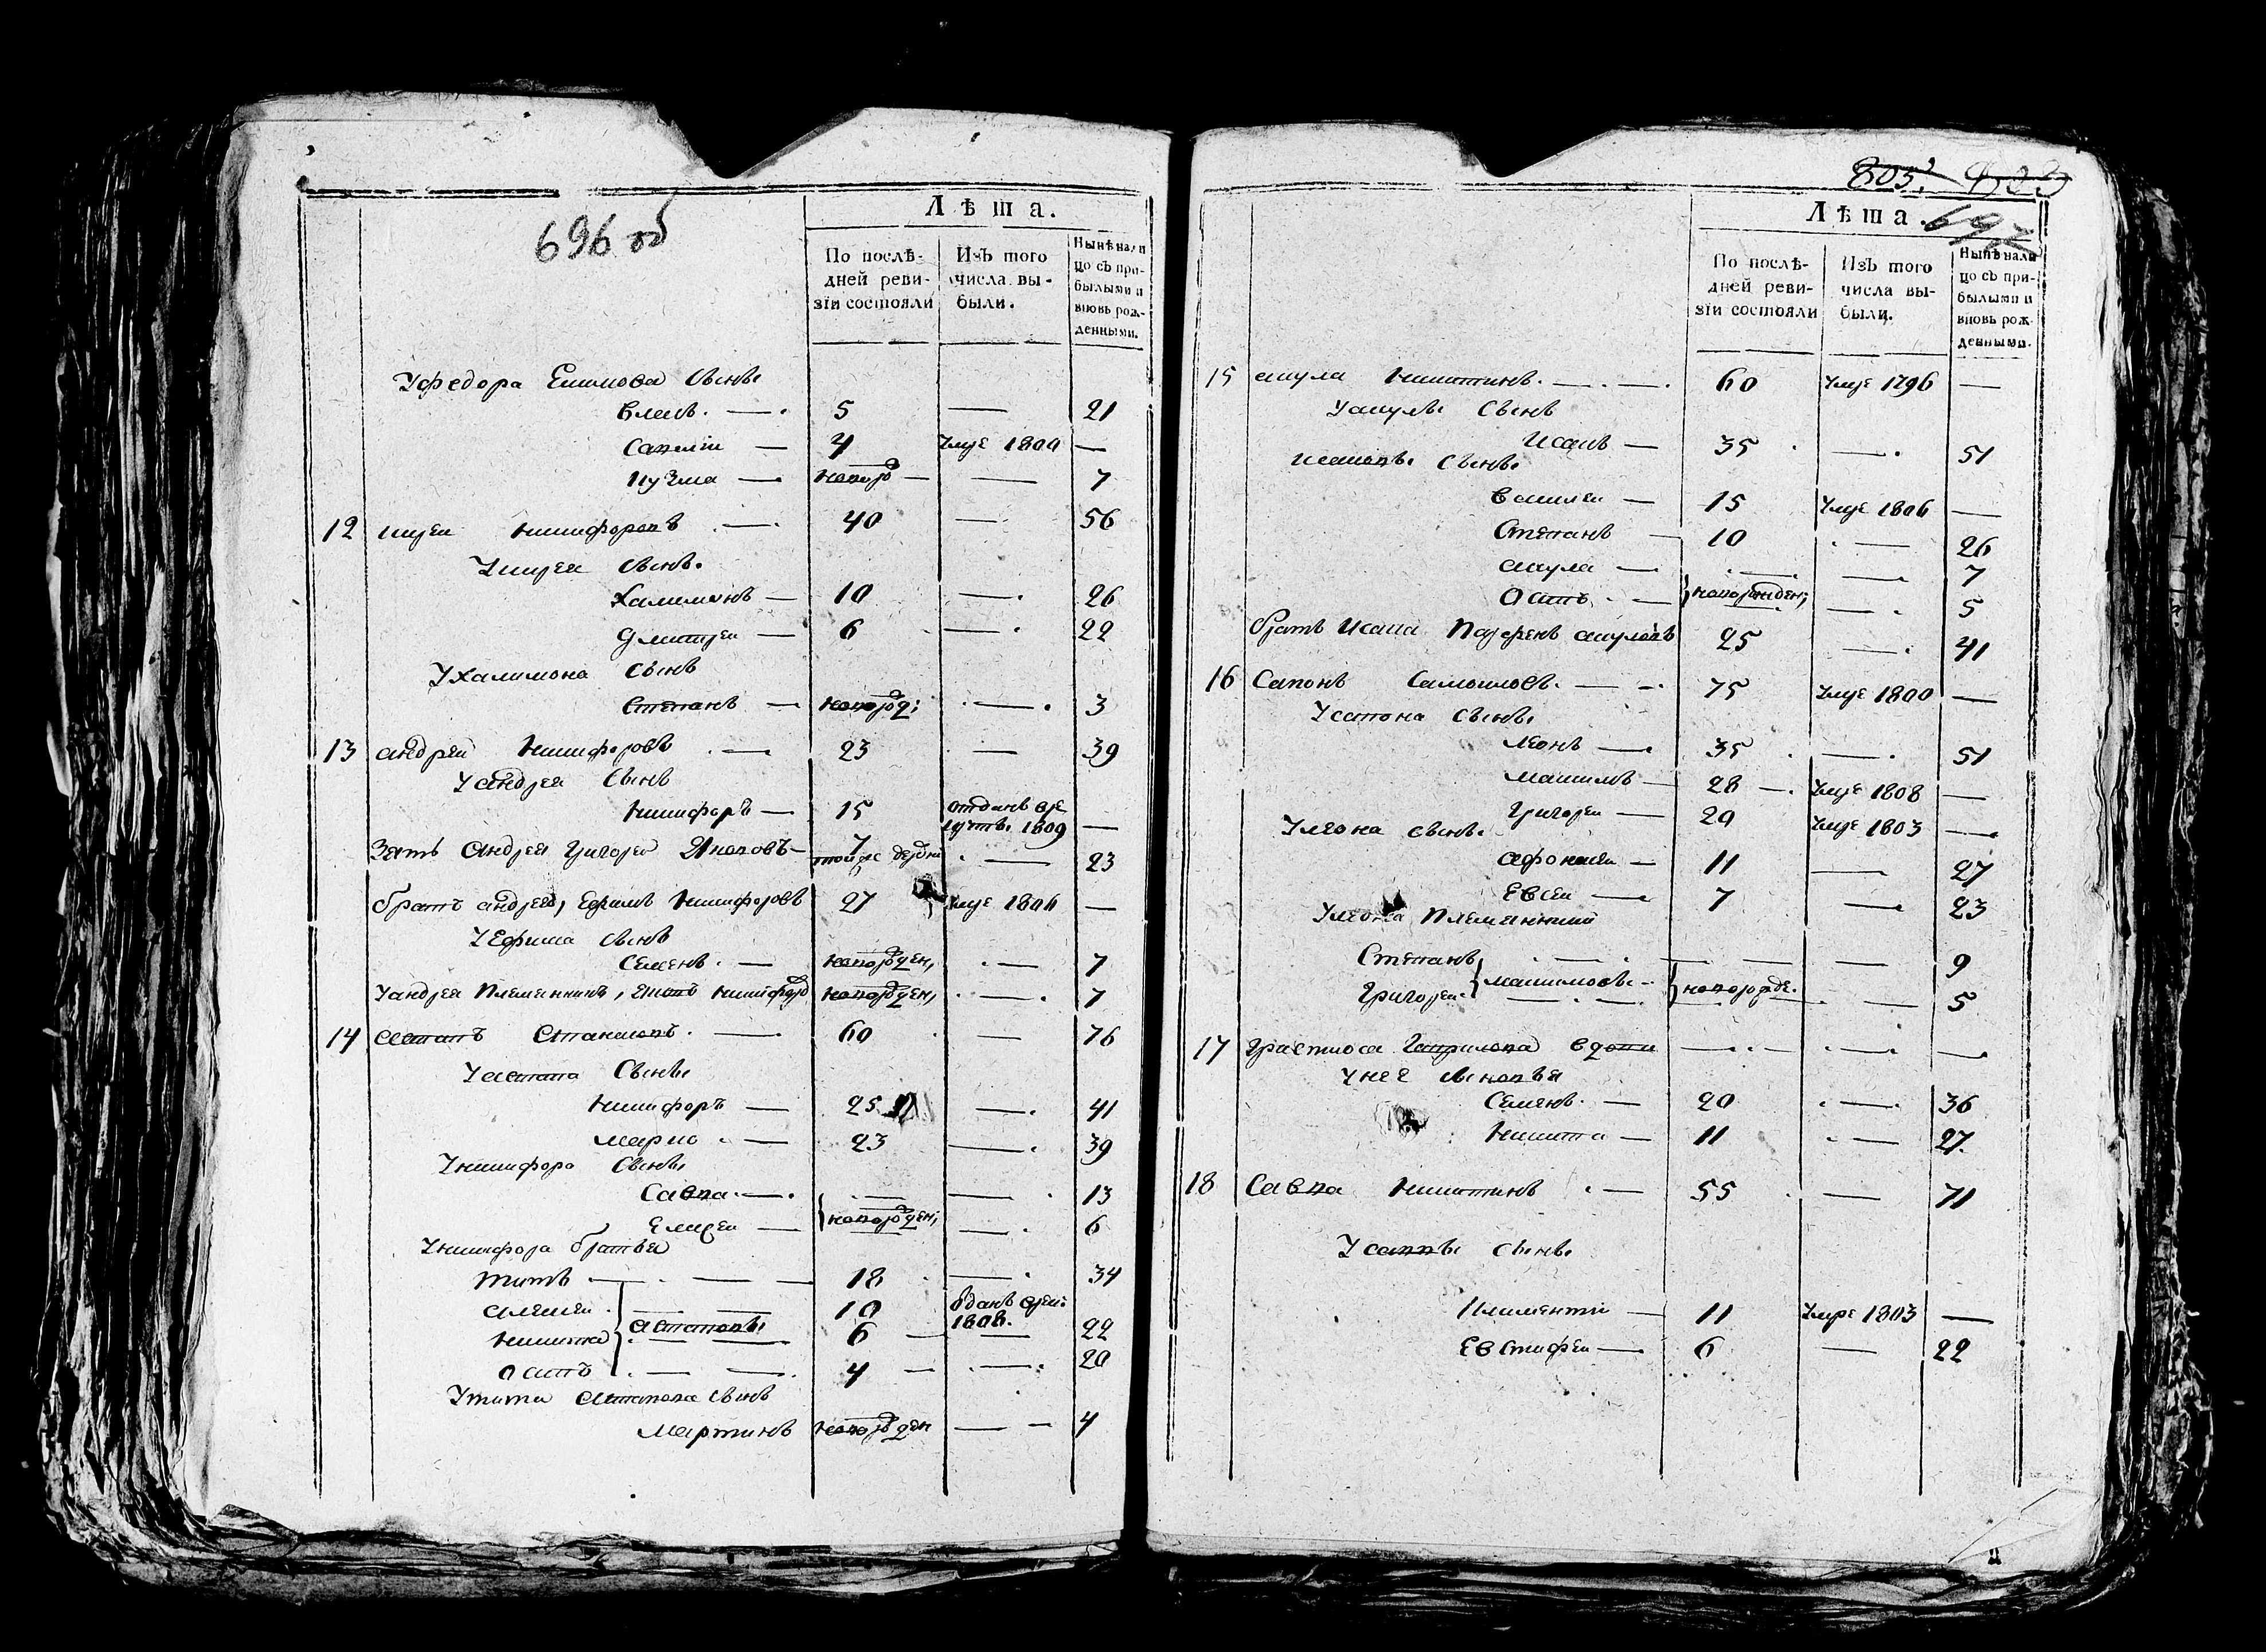 696 об
Лѣта.
По послѣ-
дней реви-
зіи состояли
Изъ того
числа вы-
были.
Нынѣ нали
цо съ при-
былыми и
вновь рож-
денными.
У федора Сынъ
5 — 21
4 Умре —
кузма — новорож — 7
12 никифоровъ — 40 — 56
Сынъ
халимонъ — 10 — 26
дмитреи — 6 — 22
У халимона Сынъ
Степанъ — новорожд: — 3
13 андреи никифоровъ — 23 — 39
У андрея Сынъ
никифоръ — 15 отданъ в ре
круты 1809 —
Зять андрея григореи — 7
той же дервни — 23
братъ андреевъ, ефимъ никифоровъ 27 Умре —
У ефима Сынъ
Семенъ — новорожден, — 7
У андрея племянникъ, никифоровъ новорожден, — 7
14 астапъ — 60 — 76
У астапа Сынъ
никифоръ — 25 — 41
марко — 23 — 39
У никифора Сынъ
Савва — 13
новорожден,
Елисеи — 6
У никифора братья
титъ — 18 — 34
алексеи — 10 отданъ в рек:
1808.
астаповы
никита — 6 — 22
осипъ — 4 — 20
У тита астапова Сынъ
мартинъ новорожден — 4
805. 803
697
Лѣта.
По послѣ-
дней реви-
зіи состояли
Изъ того
числа вы-
были.
Нынѣ нали
цо съ при-
былыми и
вновь рож-
денными.
15 акула никитинъ — 60 Умре 1796 —
У акулы Сынъ
Исаи — 35 — 51
Сынъ
василеи — 15 Умре 1806 —
Степанъ — 10 — 26
акула — 7
новорожден,
осипъ — 5
братъ Исаия парфенъ акуловъ 25 — 41
16 Сапонъ Самоиловъ — 75 Умре 1800 —
У сапона Сынъ
леонъ — 35 — 51
максимъ — 28 — Умре 1808 —
григореи — 20 Умре 1803 —
У леона Сынъ
афонасеи — 11 — 27
Евсеи — 7 — 23
У леона племянники
Степанъ — 9
максимовы — новорожде.
григореи — 5
17 гаврилова вдова —
У нее Сыновья
Семенъ — 20 — 36
никита — 11 — 27.
18 Савва никитинъ — 55 — 71
У саввы Сынъ
климентіи — 11 Умре 1803 —
Евстифеи — 6 — 22